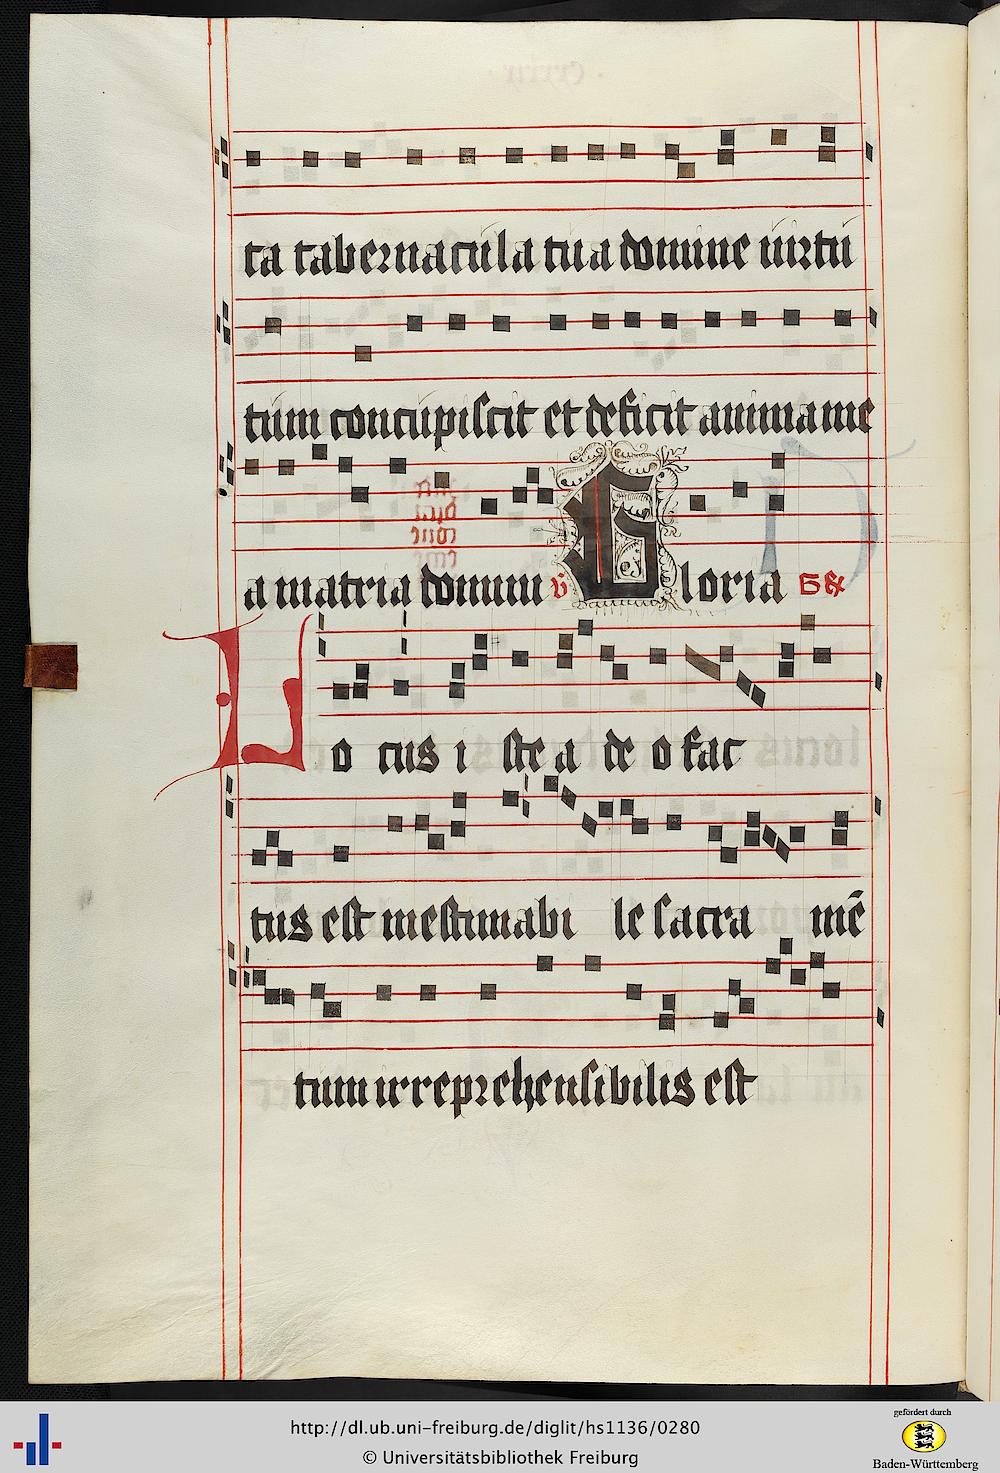 ta tabernacula tua domine uirtu
tum concupiscit et deficit anima me
a in atria domini v̄ Gloria G R
Lo cus i ste a de o fac
tus est inestimabi le sacra mē
tum irreprehensibilis est
http://dl.ub.uni-freiburg.de/diglit/hs1136/0280
© Universitätsbibliothek Freiburg
gefördert durch
Baden-Württemberg